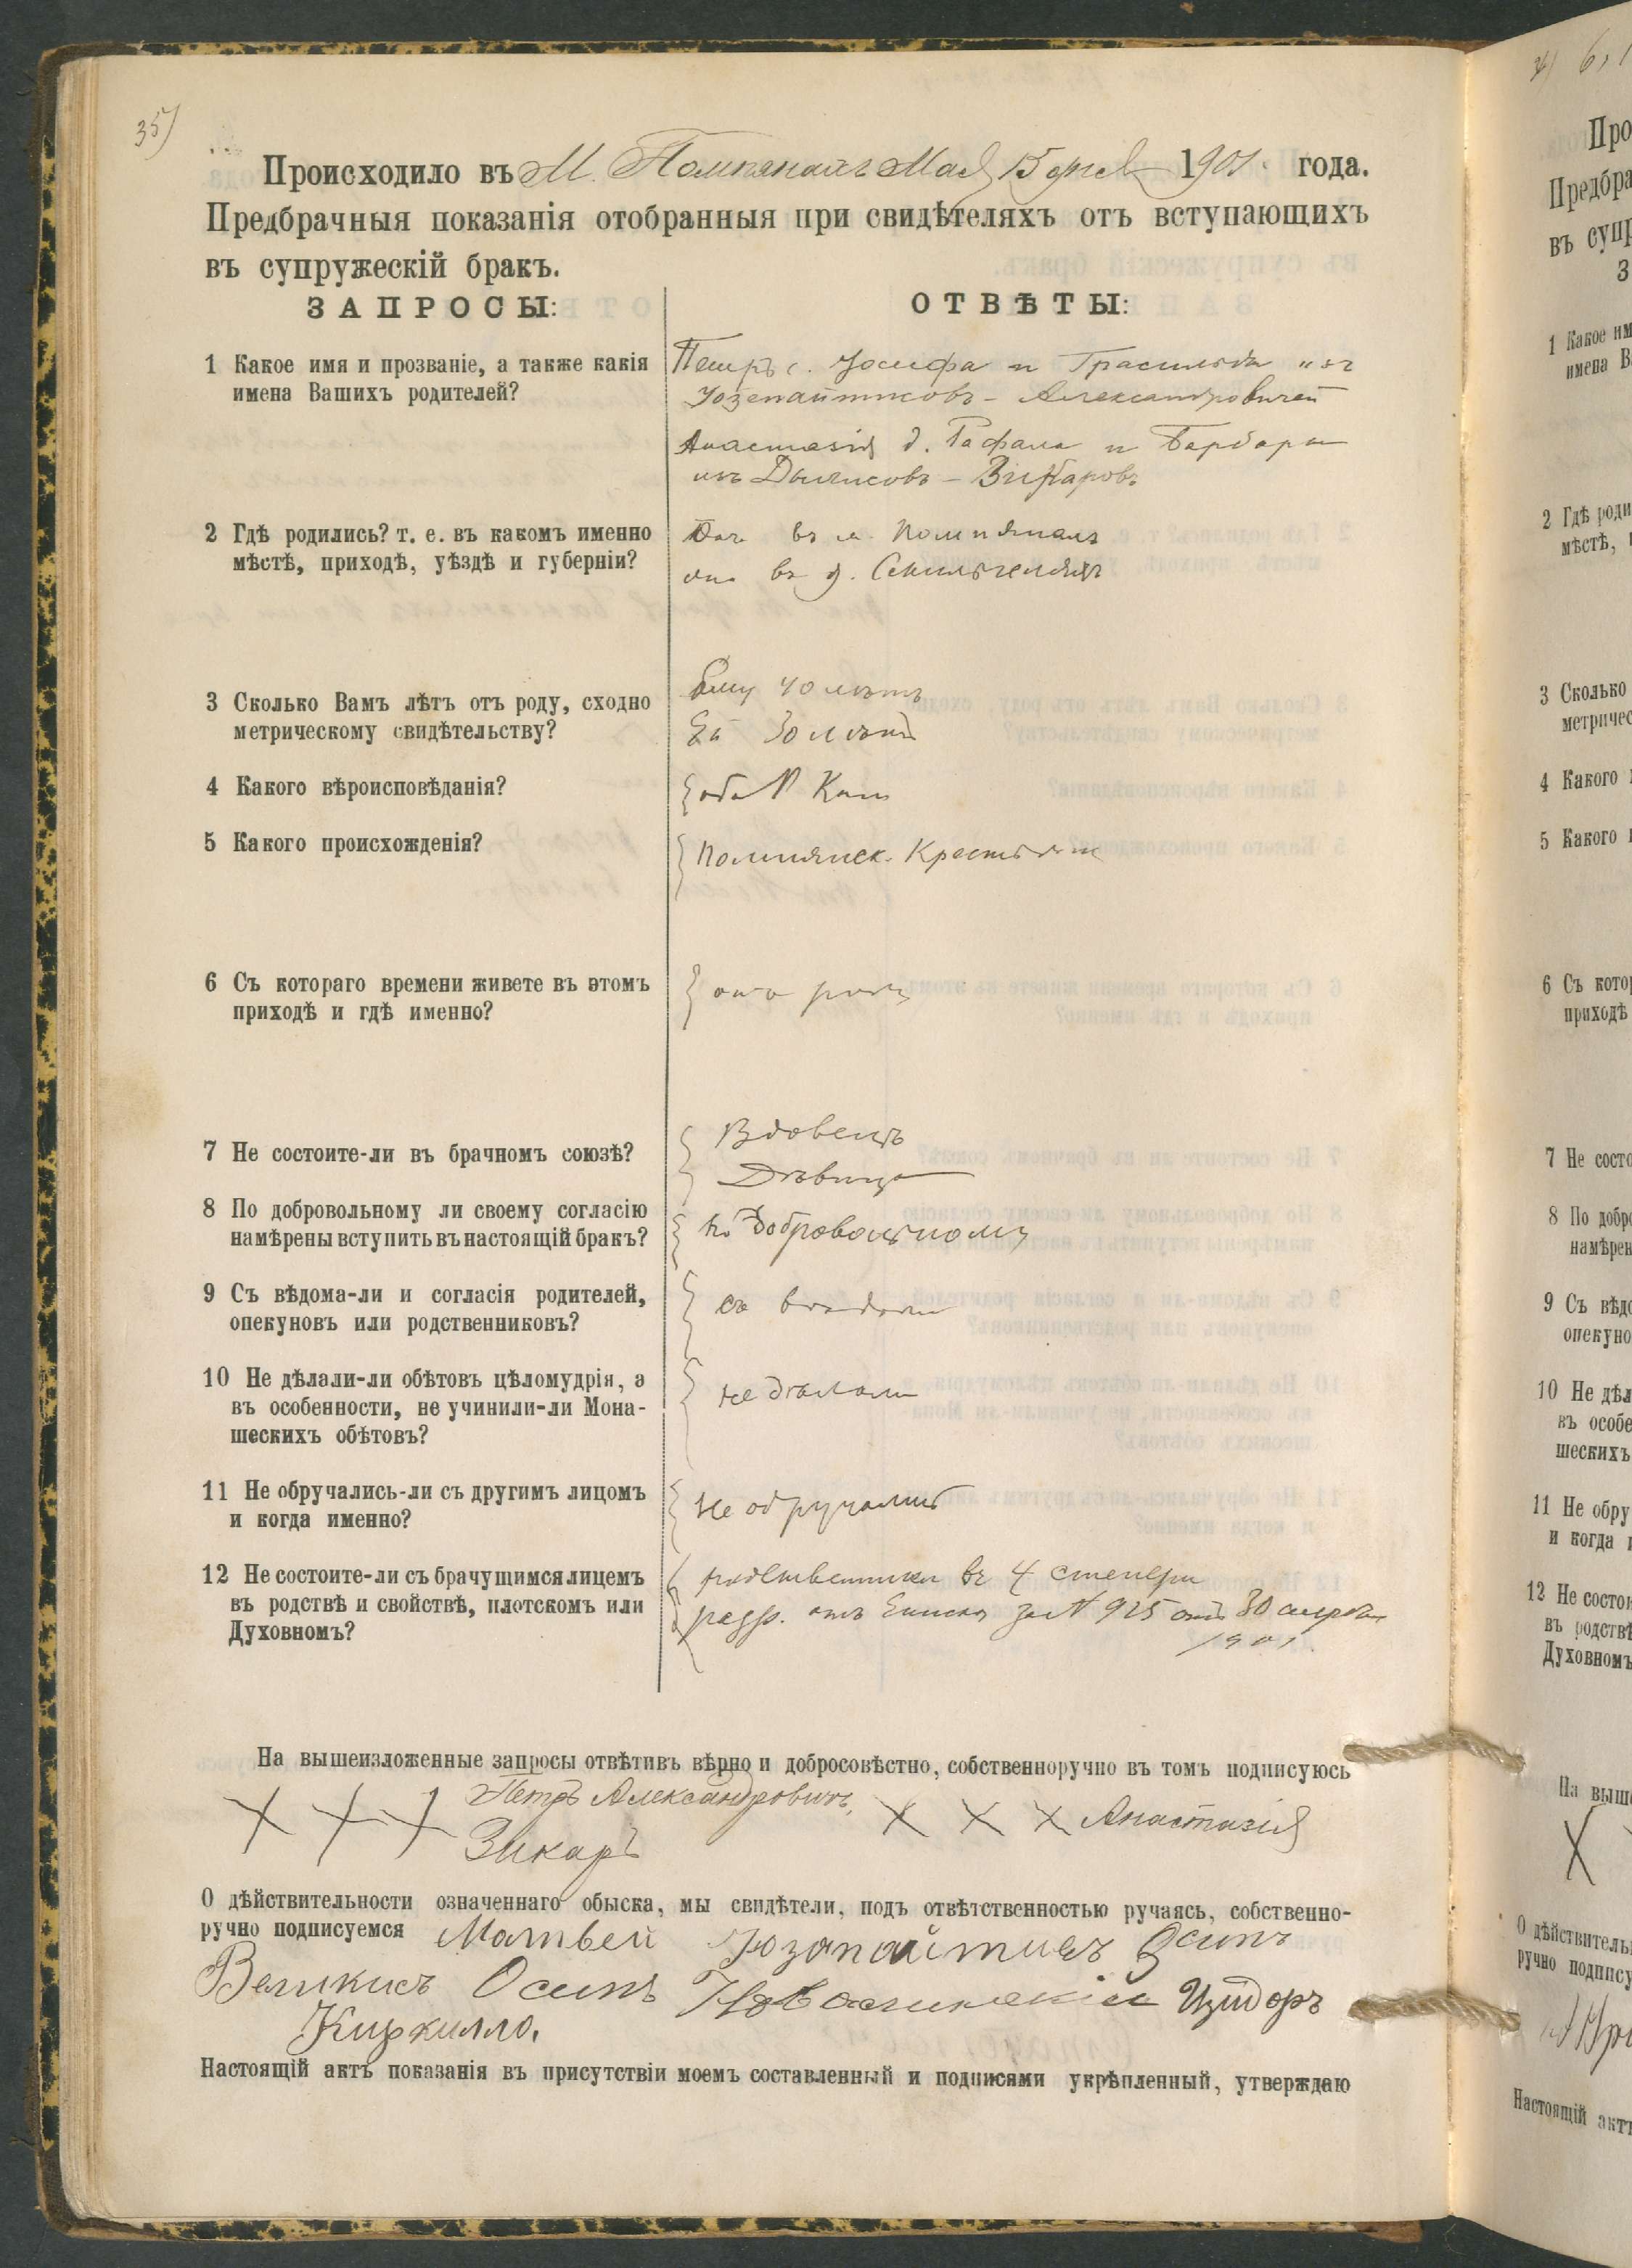 35)
Происходило въ М. Помпянахъ Мая 15 дня 1901 года.
Предбрачныя показанія отобранныя при свидѣтеляхъ отъ вступающихъ
въ супружескій бракъ.
ЗАПРОСЫ:
ОТВѢТЫ:
1 Какое имя и прозваніе, а также какія
имена Вашихъ родителей?
Петръ с. Іосифа и изъ
Юзепайтисовъ - Александровичей
Анастазія д. Рафала и Барбары
изъ - Зикаровъ
2 Гдѣ родились? т. е. въ какомъ именно
мѣстѣ, приходѣ, уѣздѣ и губерніи?
Онъ въ м. Помпянахъ
она въ д.
3 Сколько Вамъ лѣтъ отъ роду, сходно
метрическому свидѣтельству?
Ему 40 лѣтъ
Ей 30 лѣтъ
4 Какого вѣроисповѣданія?
оба Р Кат
5 Какого происхожденія?
Помпянск. Крестьяне
6 Съ котораго времени живете въ этомъ
приходѣ и гдѣ именно?
отъ роду
7 Не состоите-ли въ брачномъ союзѣ?
Вдовецъ
Дѣвица
8 По добровольному ли своему согласію
намѣрены вступить въ настоящій бракъ?
по добровольному
9 Съ вѣдома-ли и согласія родителей,
опекуновъ или родственниковъ?
съ вѣдома
10 Не дѣлали-ли обѣтовъ цѣломудрія, а
въ особенности, не учинили-ли Мона-
шескихъ обѣтовъ?
не дѣлали
11 Не обручались-ли съ другимъ лицомъ
и когда именно?
не обручались
12 Не состоите-ли съ брачущимся лицемъ
въ родствѣ и свойствѣ, плотскомъ или
Духовномъ?
родственники въ 4 степени
разр. отъ за N 925 отъ 30 апрѣля
1901.
На вышеизложенные запросы отвѣтивъ вѣрно и добросовѣстно, собственноручно въ томъ подписуюсь
X X X Петръ Александровичъ, X X X Анастазія
Зикаръ
О дѣйствительности означеннаго обыска, мы свидѣтели, подъ отвѣтственностью ручаясь, собственно-
ручно подписуемся Матвей Юзапайтисъ Осипъ
Великисъ Осипъ Изидоръ
Киркилло.
Настоящій актъ показанія въ присутствіи моемъ составленный и подписями укрѣпленный, утверждаю